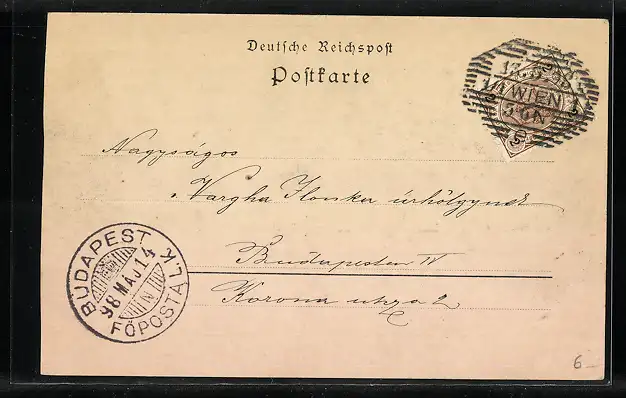 Deutsche Reichspost
Postkarte
WIEN
Nagyságos
Vargha Ilonka úrhölgynek
Budapesten IV
Korona utcza 2
BUDAPEST
98 MÁJ 14
FŐPOSTA
6–